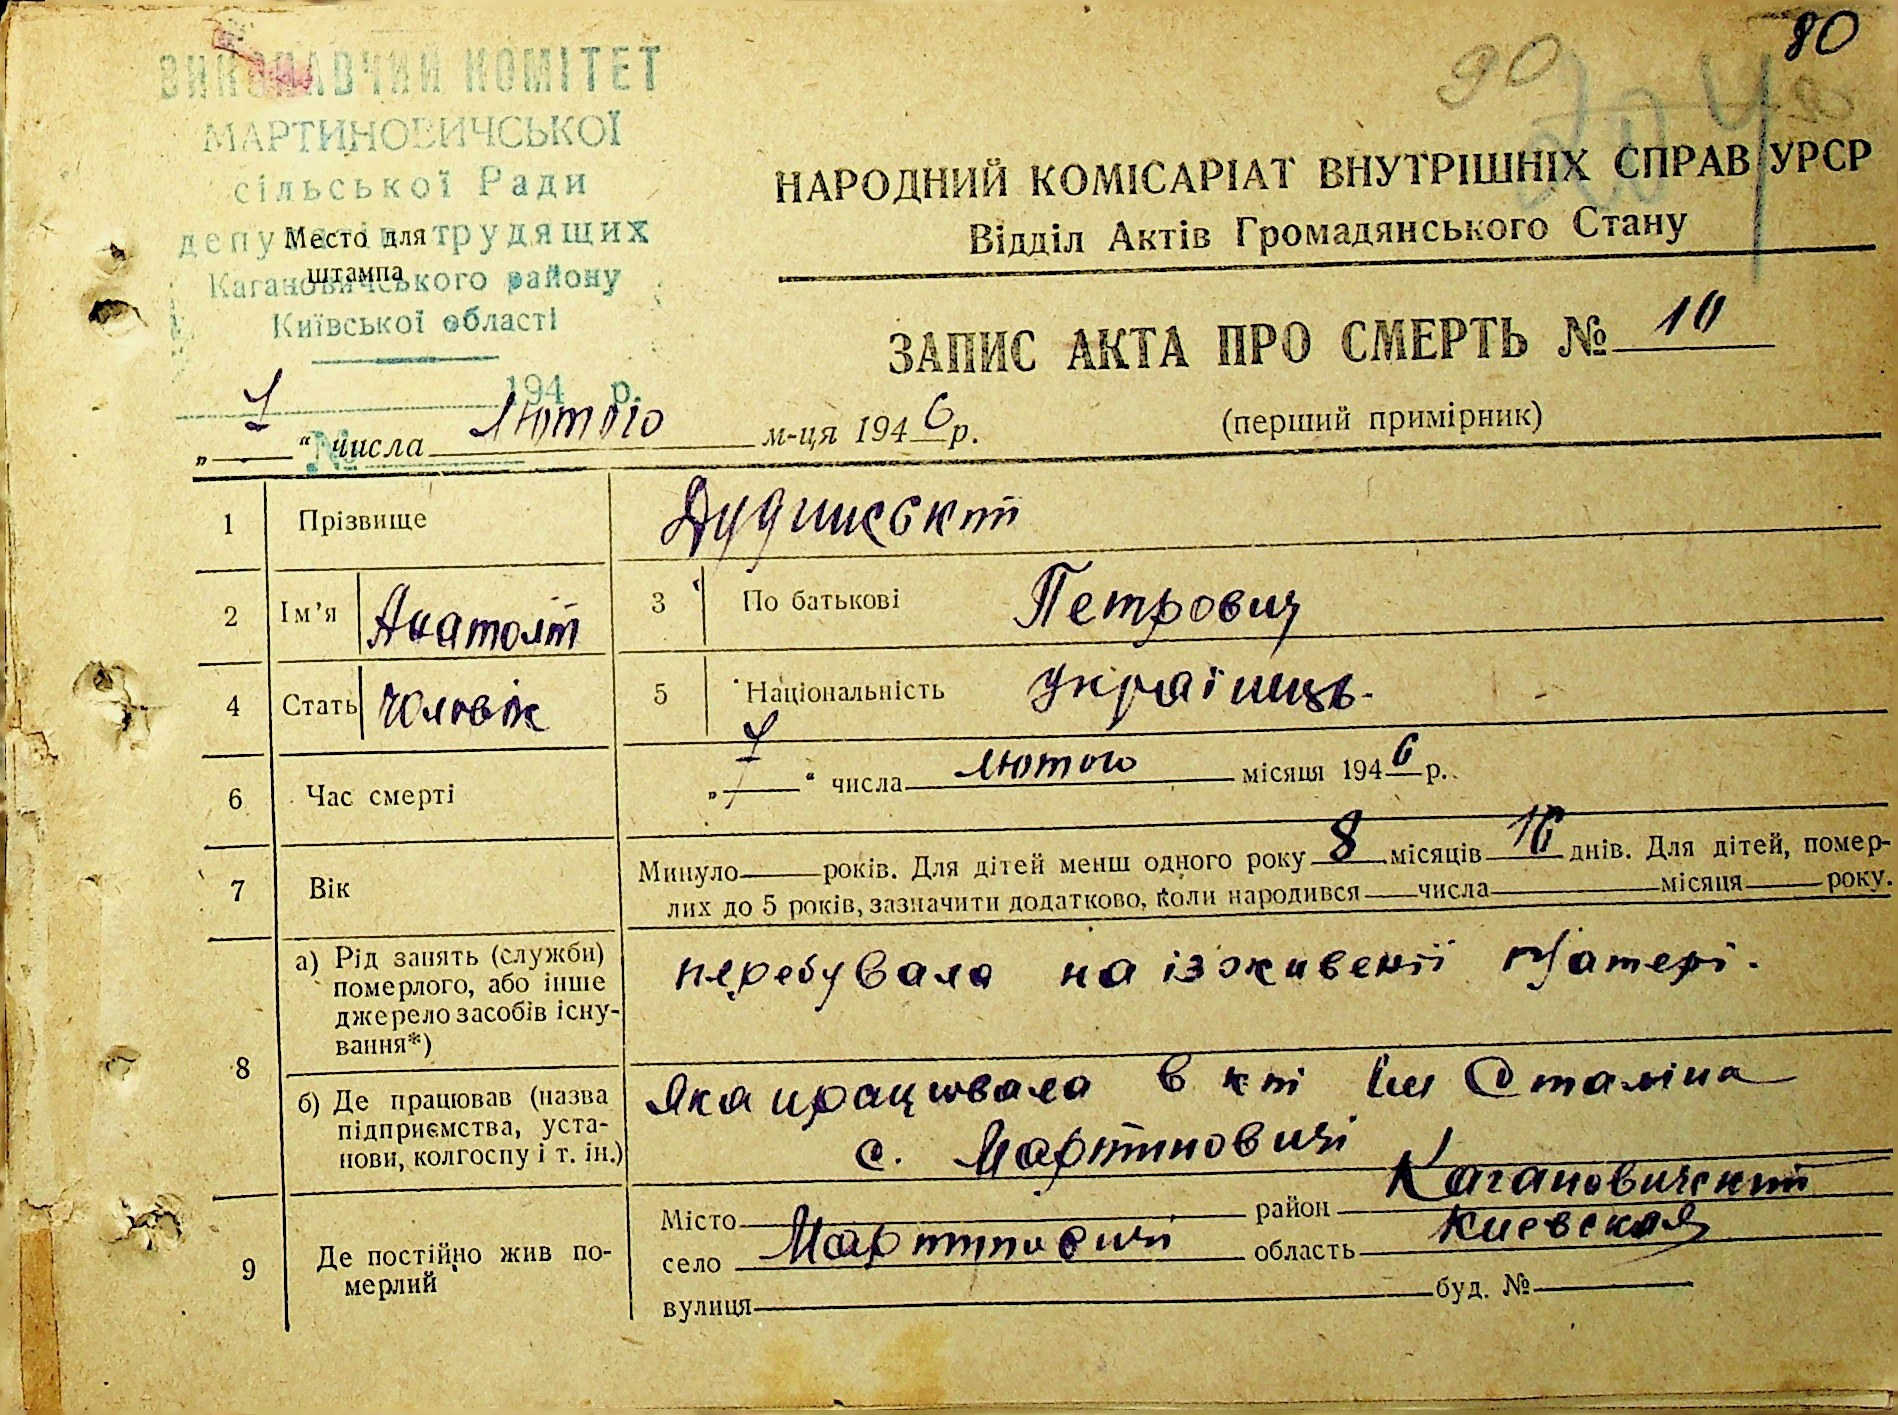 80
90
ВИКОНАВЧИЙ КОМІТЕТ
МАРТИНОВИЧСЬКОЇ
сільської Ради
депутатів трудящих
Место для
штампа
Кагановичського району
Київської області
194 р.
№
НАРОДНИЙ КОМІСАРІАТ ВНУТРІШНІХ СПРАВ УРСР
Відділ Актів Громадянського Стану
ЗАПИС АКТА ПРО СМЕРТЬ № 10
(перший примірник)
„ 7 “ числа лютого м-ця 1946 р.
1 Прізвище Дудинський
2 Ім'я Анатолій 3 По батькові Петрович
4 Стать Чоловік 5 Національність українець.
6 Час смерті „ 7 “ числа лютого місяця 1946 р.
7 Вік Минуло років. Для дітей менш одного року 8 місяців 16 днів. Для дітей, помер-
лих до 5 років, зазначити додатково, коли народився числа місяця року.
8 а) Рід занять (служби)
померлого, або інше
джерело засобів існу-
вання*)
перебувало на ізживенії матері.
б) Де працював (назва
підприємства, уста-
нови, колгоспу і т. ін.)
яка працювала в к-пі ім Сталіна
с. Мартиновичі
9 Де постійно жив по-
мерлий
Місто район Кагановичский
село Мартиновичі область Киевская
вулиця буд. №